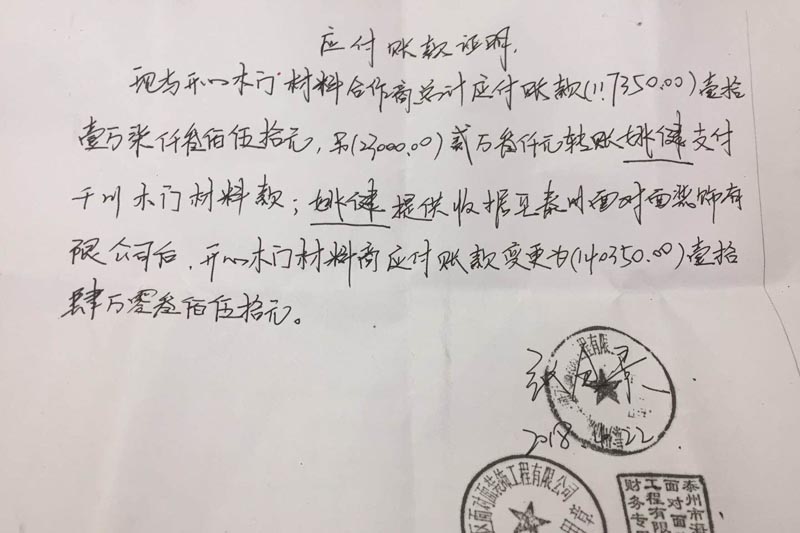 应付账款证明.
现与开心木门材料合作商总计应付账款(117350.00)壹拾
壹万柒仟叁佰伍拾元,另(23000.00)贰万叁仟元转账姚健支付
于川木门材料款;姚健提供收据至泰州面对面装饰有
限公司后,开心木门材料商应付账款变更为(140350.00)壹拾
肆万零叁佰伍拾元。
程有限
2018 4.22
区面对面装饰工程有限公司
泰州市海
面对面
工程有限
财务专